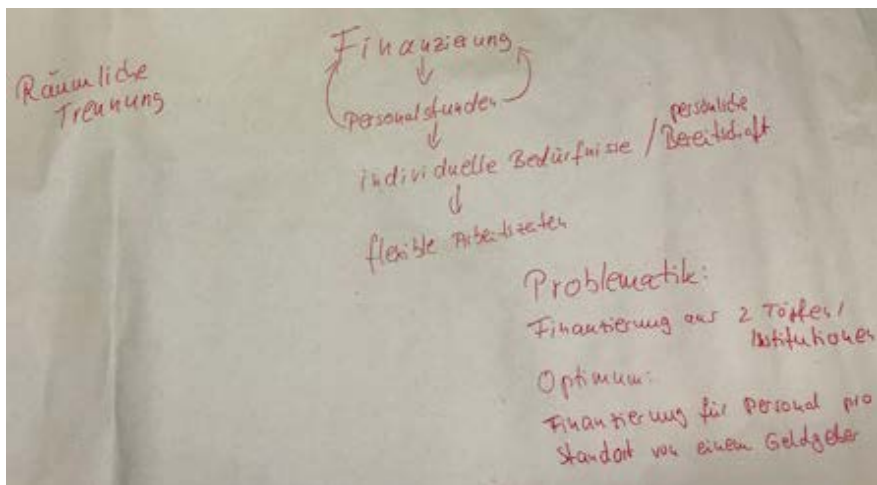 Räumliche
Trennung
Finanzierung
Personalstunden
individuelle Bedürfnisse / persönliche
Bereitschaft
flexible Arbeitszeiten
Problematik:
Finanzierung aus 2 Töpfen/
Institutionen
Optimum:
Finanzierung für Personal pro
Standort von einem Geldgeber